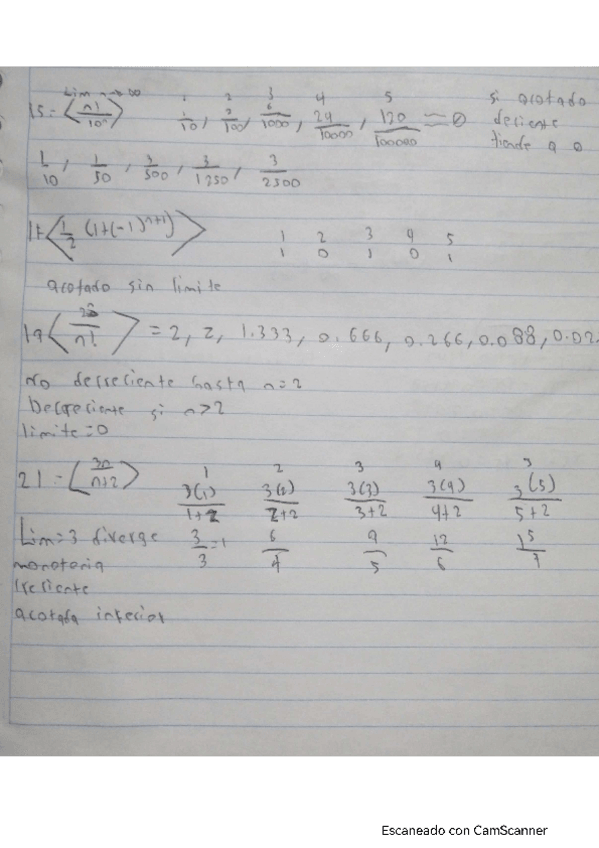 Lim n→∞
15= ⟨n!/10ⁿ⟩ 1 2 3 4 5 si acotado
1/10, 2/100, 6/1000, 24/10000, 120/100000 ≈ 0 deciente
tiende a 0
1/10, 1/50, 3/500, 3/1250, 3/2500
17 ⟨1/2 (1+(-1)ⁿ⁺¹)⟩ 1 2 3 4 5
1 0 1 0 1
acotado sin limite
19 ⟨2ⁿ/n!⟩ = 2, 2, 1.333, 0.666, 0.266, 0.088, 0.02
No desreciente hasta n=2
Decreciente si n>2
limite=0
21= ⟨3n/n+2⟩ 1 2 3 4 5
3(1)/1+2 3(2)/2+2 3(3)/3+2 3(4)/4+2 3(5)/5+2
Lim=3 diverge 3/3=1 6/4 9/5 12/6 15/7
monotoria
creciente
acotada inferior
Escaneado con CamScanner